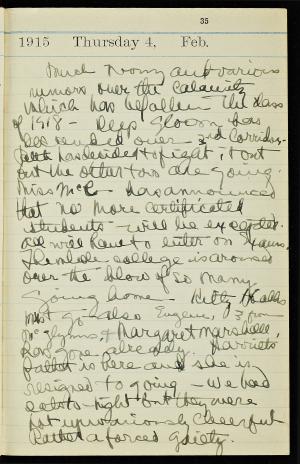 35
1915 Thursday 4, Feb.
Much worry and various
rumors over the calamity
which has befallen the class
of 1918 - Deep gloom has
descended over 3rd Corridor.
out the other two are going.
Miss Mc has announced
that no more certificated
students will be excepted.
all will have to enter on Exams.
The whole college is aroused
over the blow of so many
going home - Betty
must go - also Eugene, 3 from
McGlynns, & Margaret Marshall
have gone already. Harriets
father is here and she is
resigned to going - We had
eats to-night but they were
not uproariously cheerful
Rather a forced gaiety.